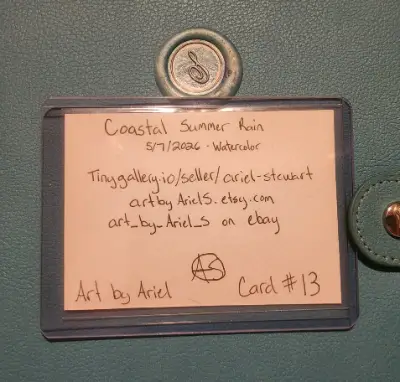 Coastal Summer Rain
5/7/2026 - Watercolor
Tinygallery.io/seller/ariel-stewart
artbyArielS.etsy.com
art_by_Ariel_S on ebay
AS
Art by Ariel Card #13